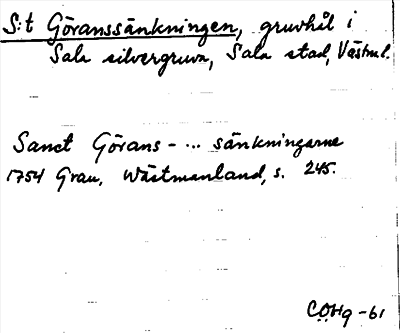 S:t Göranssänkningen, gruvhål i
Sala silvergruva, Sala stad, Västml.
Sanct Görans - ... sänkningarne
1754 Grau, Wästmanland, s. 245.
COHg -61